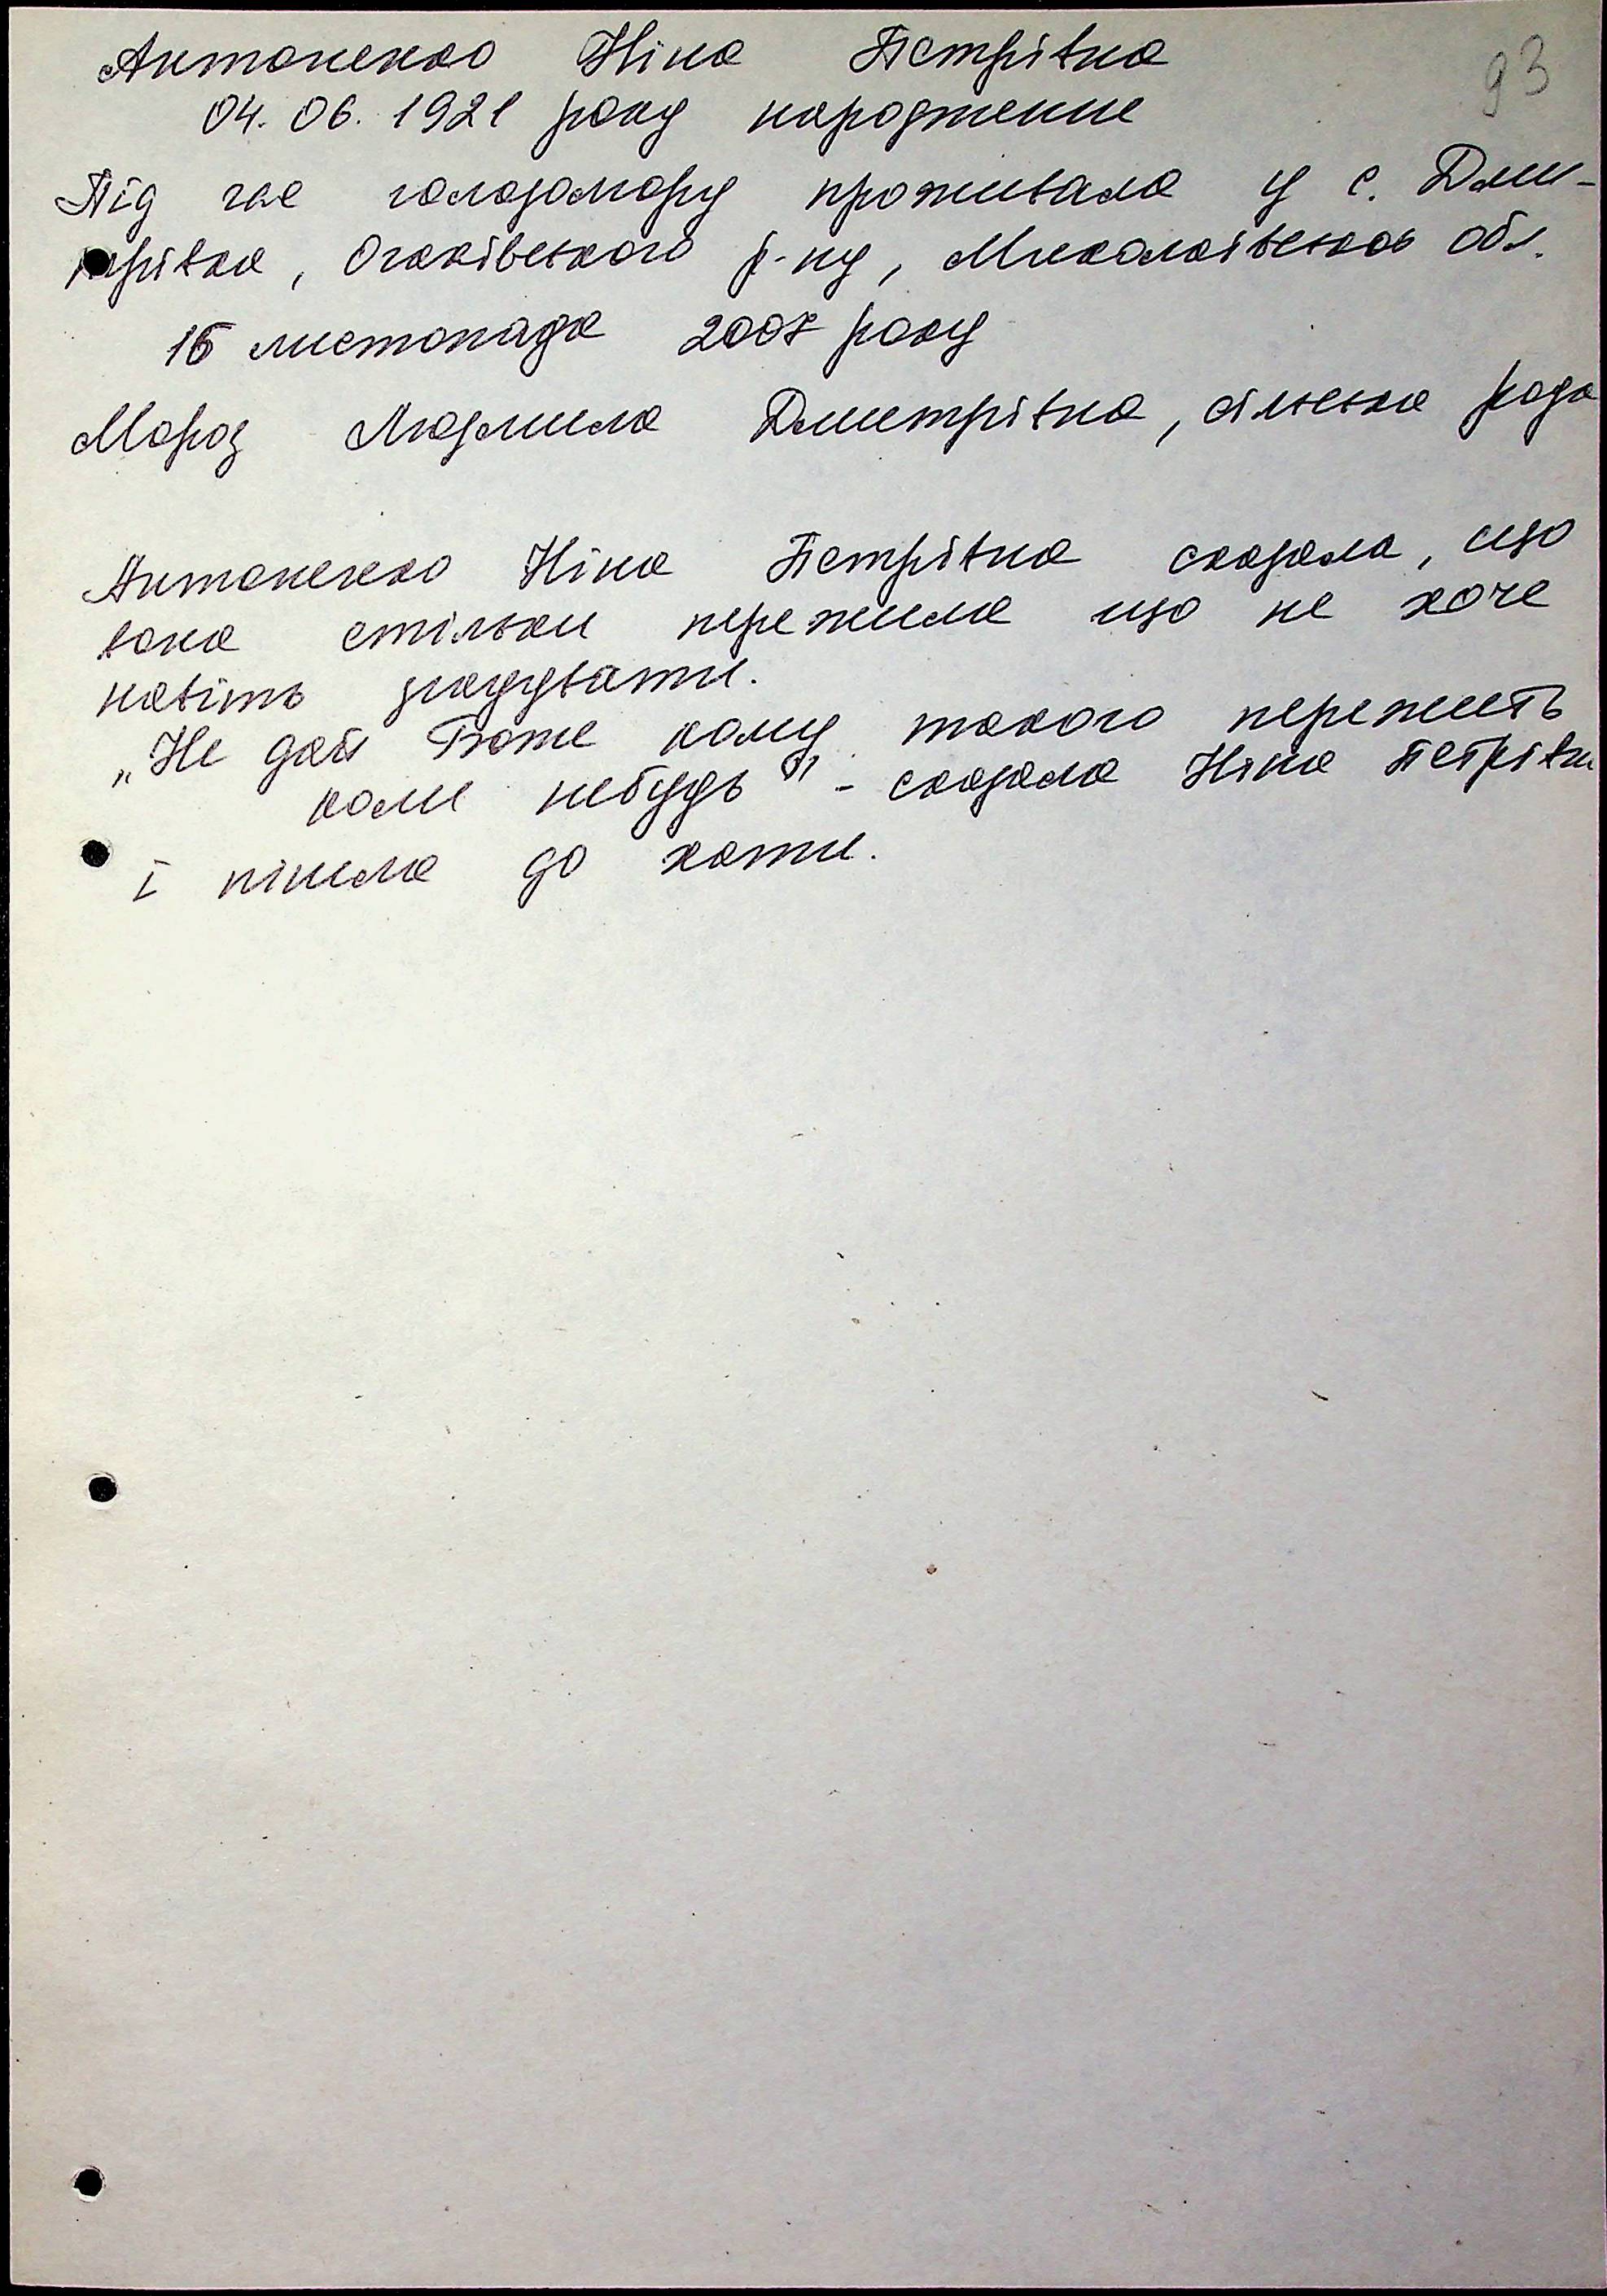 Антоненко Ніна Петрівна
93
04.06.1921 року народження
Під час голодомору проживала у с. Дми-
трівка, Очаківського р-ну, Миколаївської обл.
16 листопада 2007 року
Мороз Людмила Дмитрівна, сільська рада
Антоненко Ніна Петрівна сказала, що
вона стільки пережила що не хоче
навіть згадувати.
„Не дай Боже кому такого пережить
коли небудь" - сказала Ніна Петрівна
і пішла до хати.